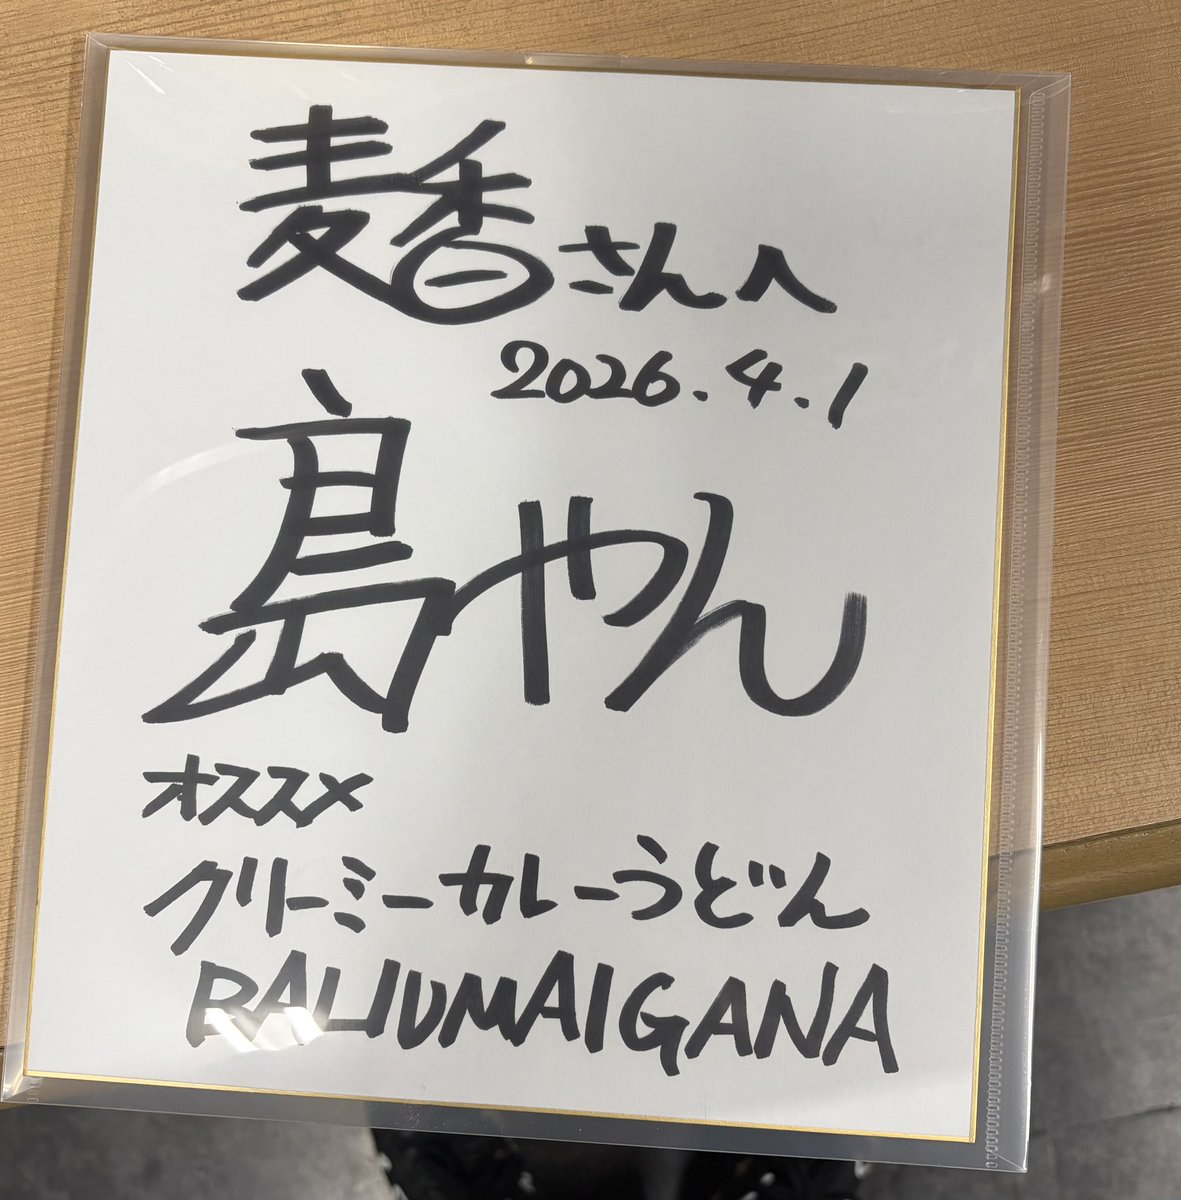 麦香さんへ
2026.4.1
島やん
オススメ
クリーミーカレーうどん
BALIUMAIGANA